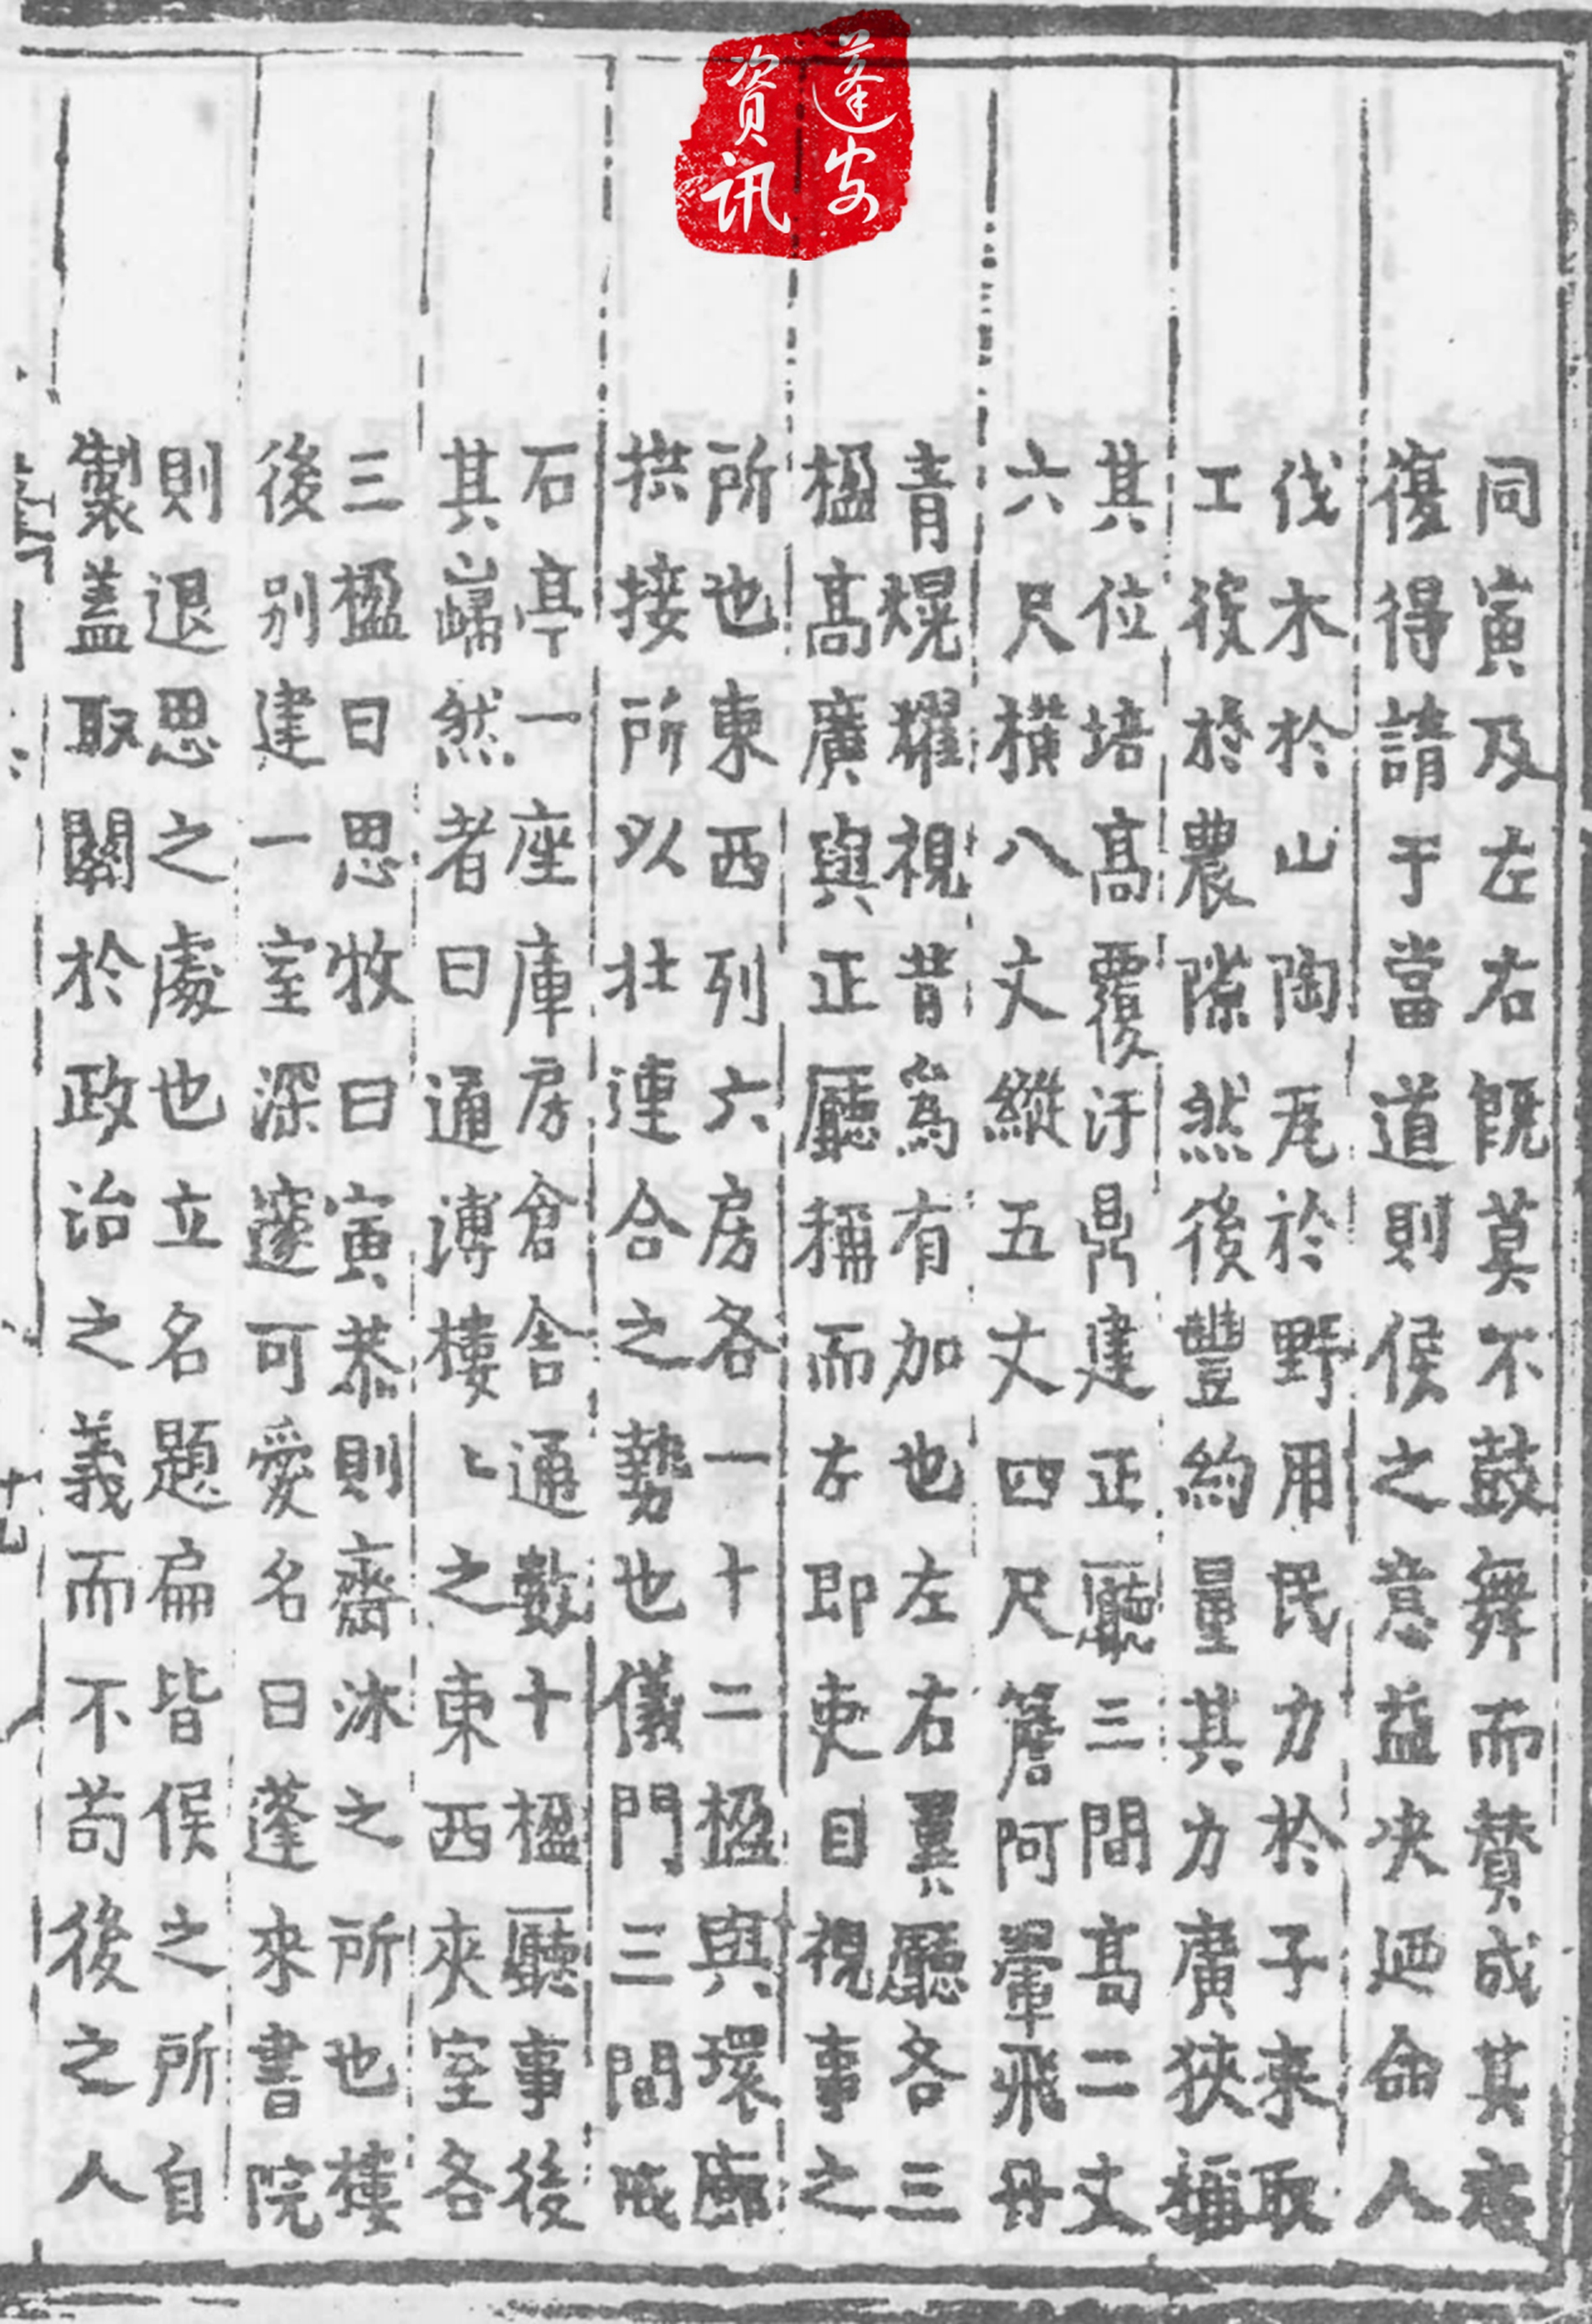 蓬安
資訊
同寅及左右既莫不鼓舞而贊成其
復得請于當道則侯之意益决廼命人
伐木於山陶瓦於野用民力於子来取
工役於農隙然後豐約量其力廣狹稱
其位培高覆汙鼎建正廳三間高二丈
六尺横八丈縱五丈四尺簷阿翬飛丹
青熀耀視昔為有加也左右翼廳各三
楹高廣與正廳稱而左即吏目視事之
所也東西列六房各一十二楹與環廊
拱接所以壮連合之勢也儀門三間戒
石亭一座庫房倉舎通數十楹廳事後
其巋然者曰通溥樓〻之東西夾室各
三楹曰思牧曰寅恭則齋沐之所也樓
後别建一室深邃可愛名曰蓬來書院
則退思之處也立名題扁皆侯之所自
製蓋取關於政治之義而不苟後之人